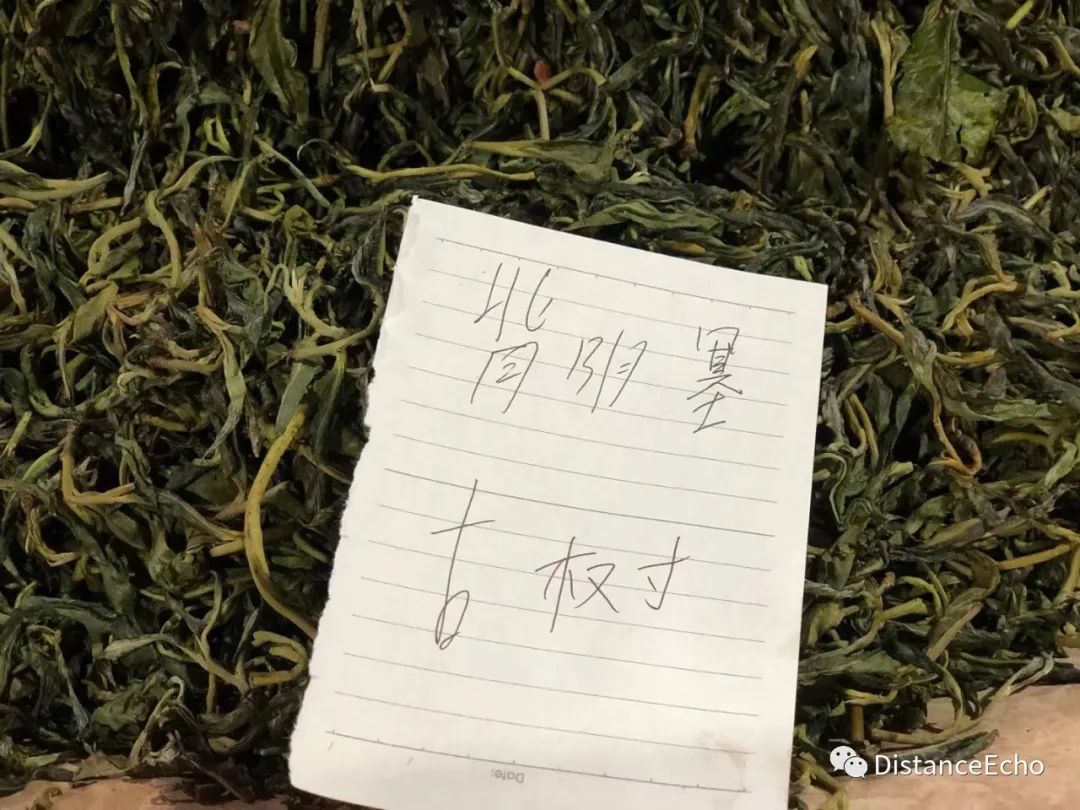 背阴塞
古树
Date:
DistanceEcho